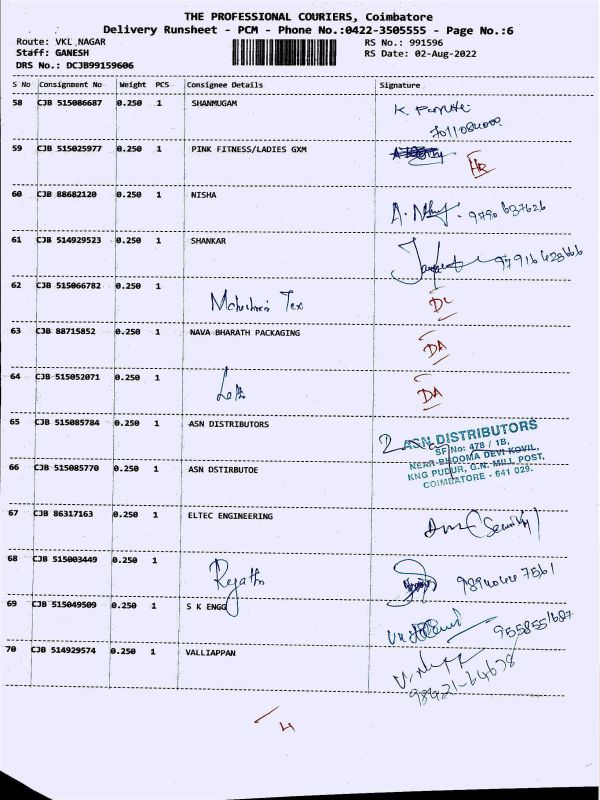 THE PROFESSIONAL COURIERS, Coimbatore
Delivery Runsheet - PCM - Phone No.:0422-3505555 - Page No.:6
Route: VKL NAGAR RS No.: 991596
Staff: GANESH RS Date: 02-Aug-2022
DRS No.: DCJB99159606
S No Consignment No Weight PCS Consignee Details Signature
58 CJB 515086687 0.250 1 SHANMUGAM
59 CJB 515025977 0.250 1 PINK FITNESS/LADIES GXM
60 CJB 88682120 0.250 1 NISHA 9790 637626
61 CJB 514929523 0.250 1 SHANKAR
62 CJB 515066782 0.250 1 Tex
DL
63 CJB 88715852 0.250 1 NAVA BHARATH PACKAGING DA
64 CJB 515052071 0.250 1 DA
65 CJB 515085784 0.250 1 ASN DISTRIBUTORS
ASN DISTRIBUTORS
SF No: 478 / 1B,
NEAR BHOOMA DEVI KOVIL,
KNG PUDUR, G.N. MILL POST,
COIMBATORE - 641 029.
66 CJB 515085770 0.250 1 ASN DSTIRBUTOE
67 CJB 86317163 0.250 1 ELTEC ENGINEERING (Security)
68 CJB 515003449 0.250 1
69 CJB 515049509 0.250 1 S K ENGG 9558551687
70 CJB 514929574 0.250 1 VALLIAPPAN
98421-64678
4